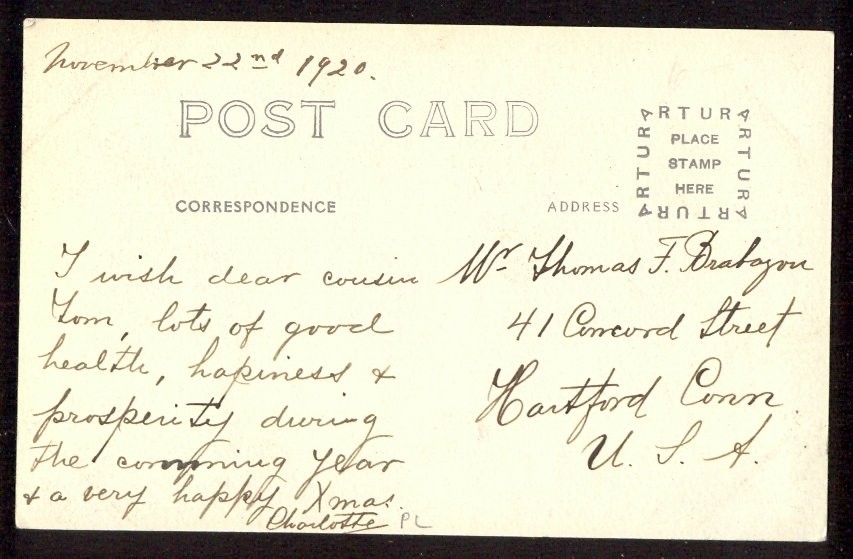 November 22nd 1920.
POST CARD
ARTURA
ARTURA
ARTURA
ARTURA
PLACE
STAMP
HERE
CORRESPONDENCE
ADDRESS
I wish dear cousin
Tom, lots of good
health, hapiness &
prosperity during
the comming year
& a very happy Xmas.
Charlotte PL
Mr Thomas F. Brabazon
41 Concord Street
Hartford Conn.
U. S. A.